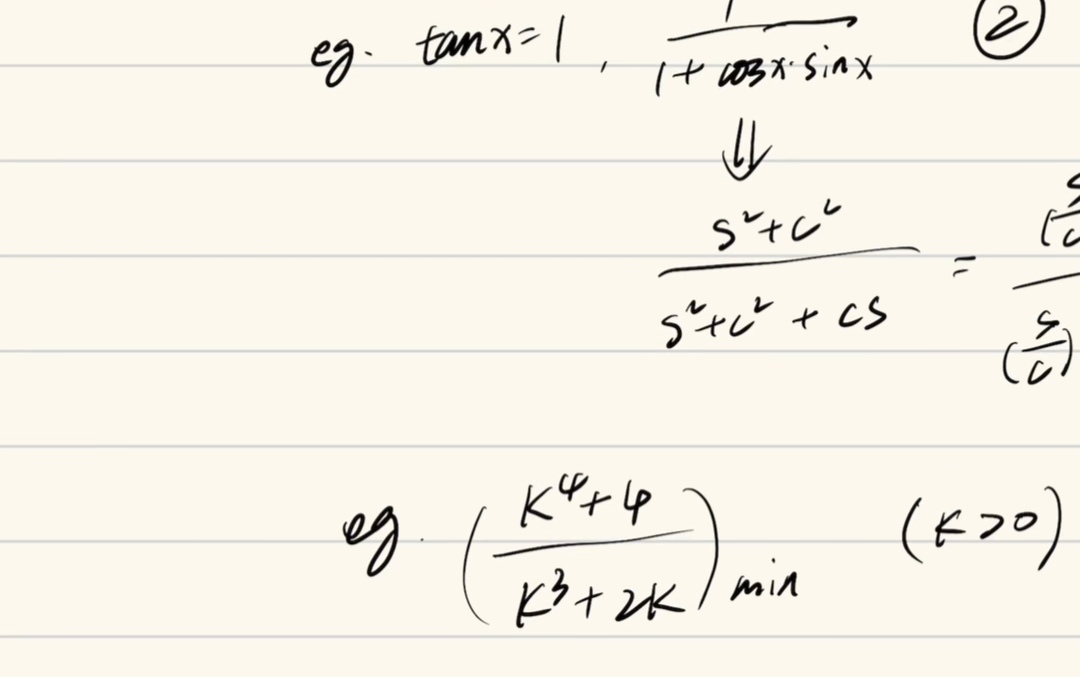 eg. tanx=1, 1/(1+cosx·sinx) ②
⇓
(s²+c²)/(s²+c²+cs) = (s/c
(s/c)
eg. ((K⁴+4)/(K³+2K))min (K>0)